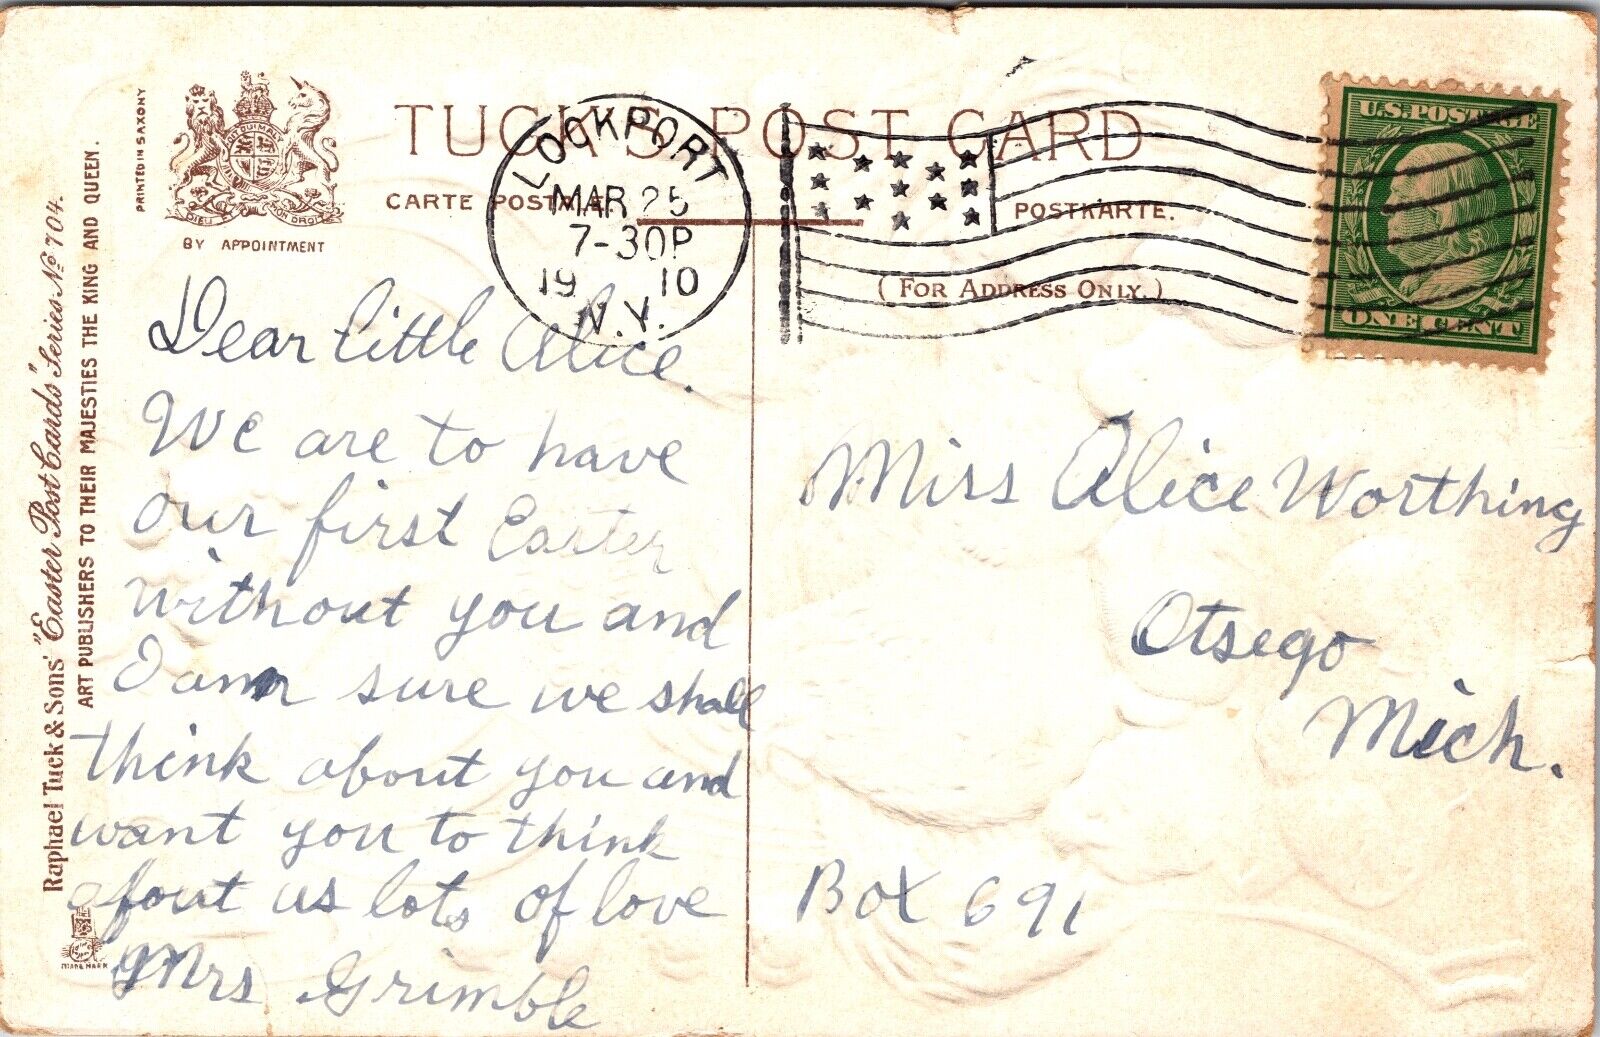 TUCK'S POST CARD
CARTE POSTALE.
POSTKARTE.
(FOR ADDRESS ONLY.)
PRINTED IN SAXONY
DIEU ET MON DROIT
BY APPOINTMENT
Raphael Tuck & Sons' "Easter Post Cards" Series No 704.
ART PUBLISHERS TO THEIR MAJESTIES THE KING AND QUEEN.
TRADE MARK
LOCKPORT
MAR 25
7-30P
1910
N.Y.
U.S. POSTAGE
ONE CENT
Dear little Alice.
We are to have
our first Easter
without you and
I am sure we shall
think about you and
want you to think
about us lots of love
Mrs Grimble
Miss Alice Worthing
Otsego
Mich.
Box 691